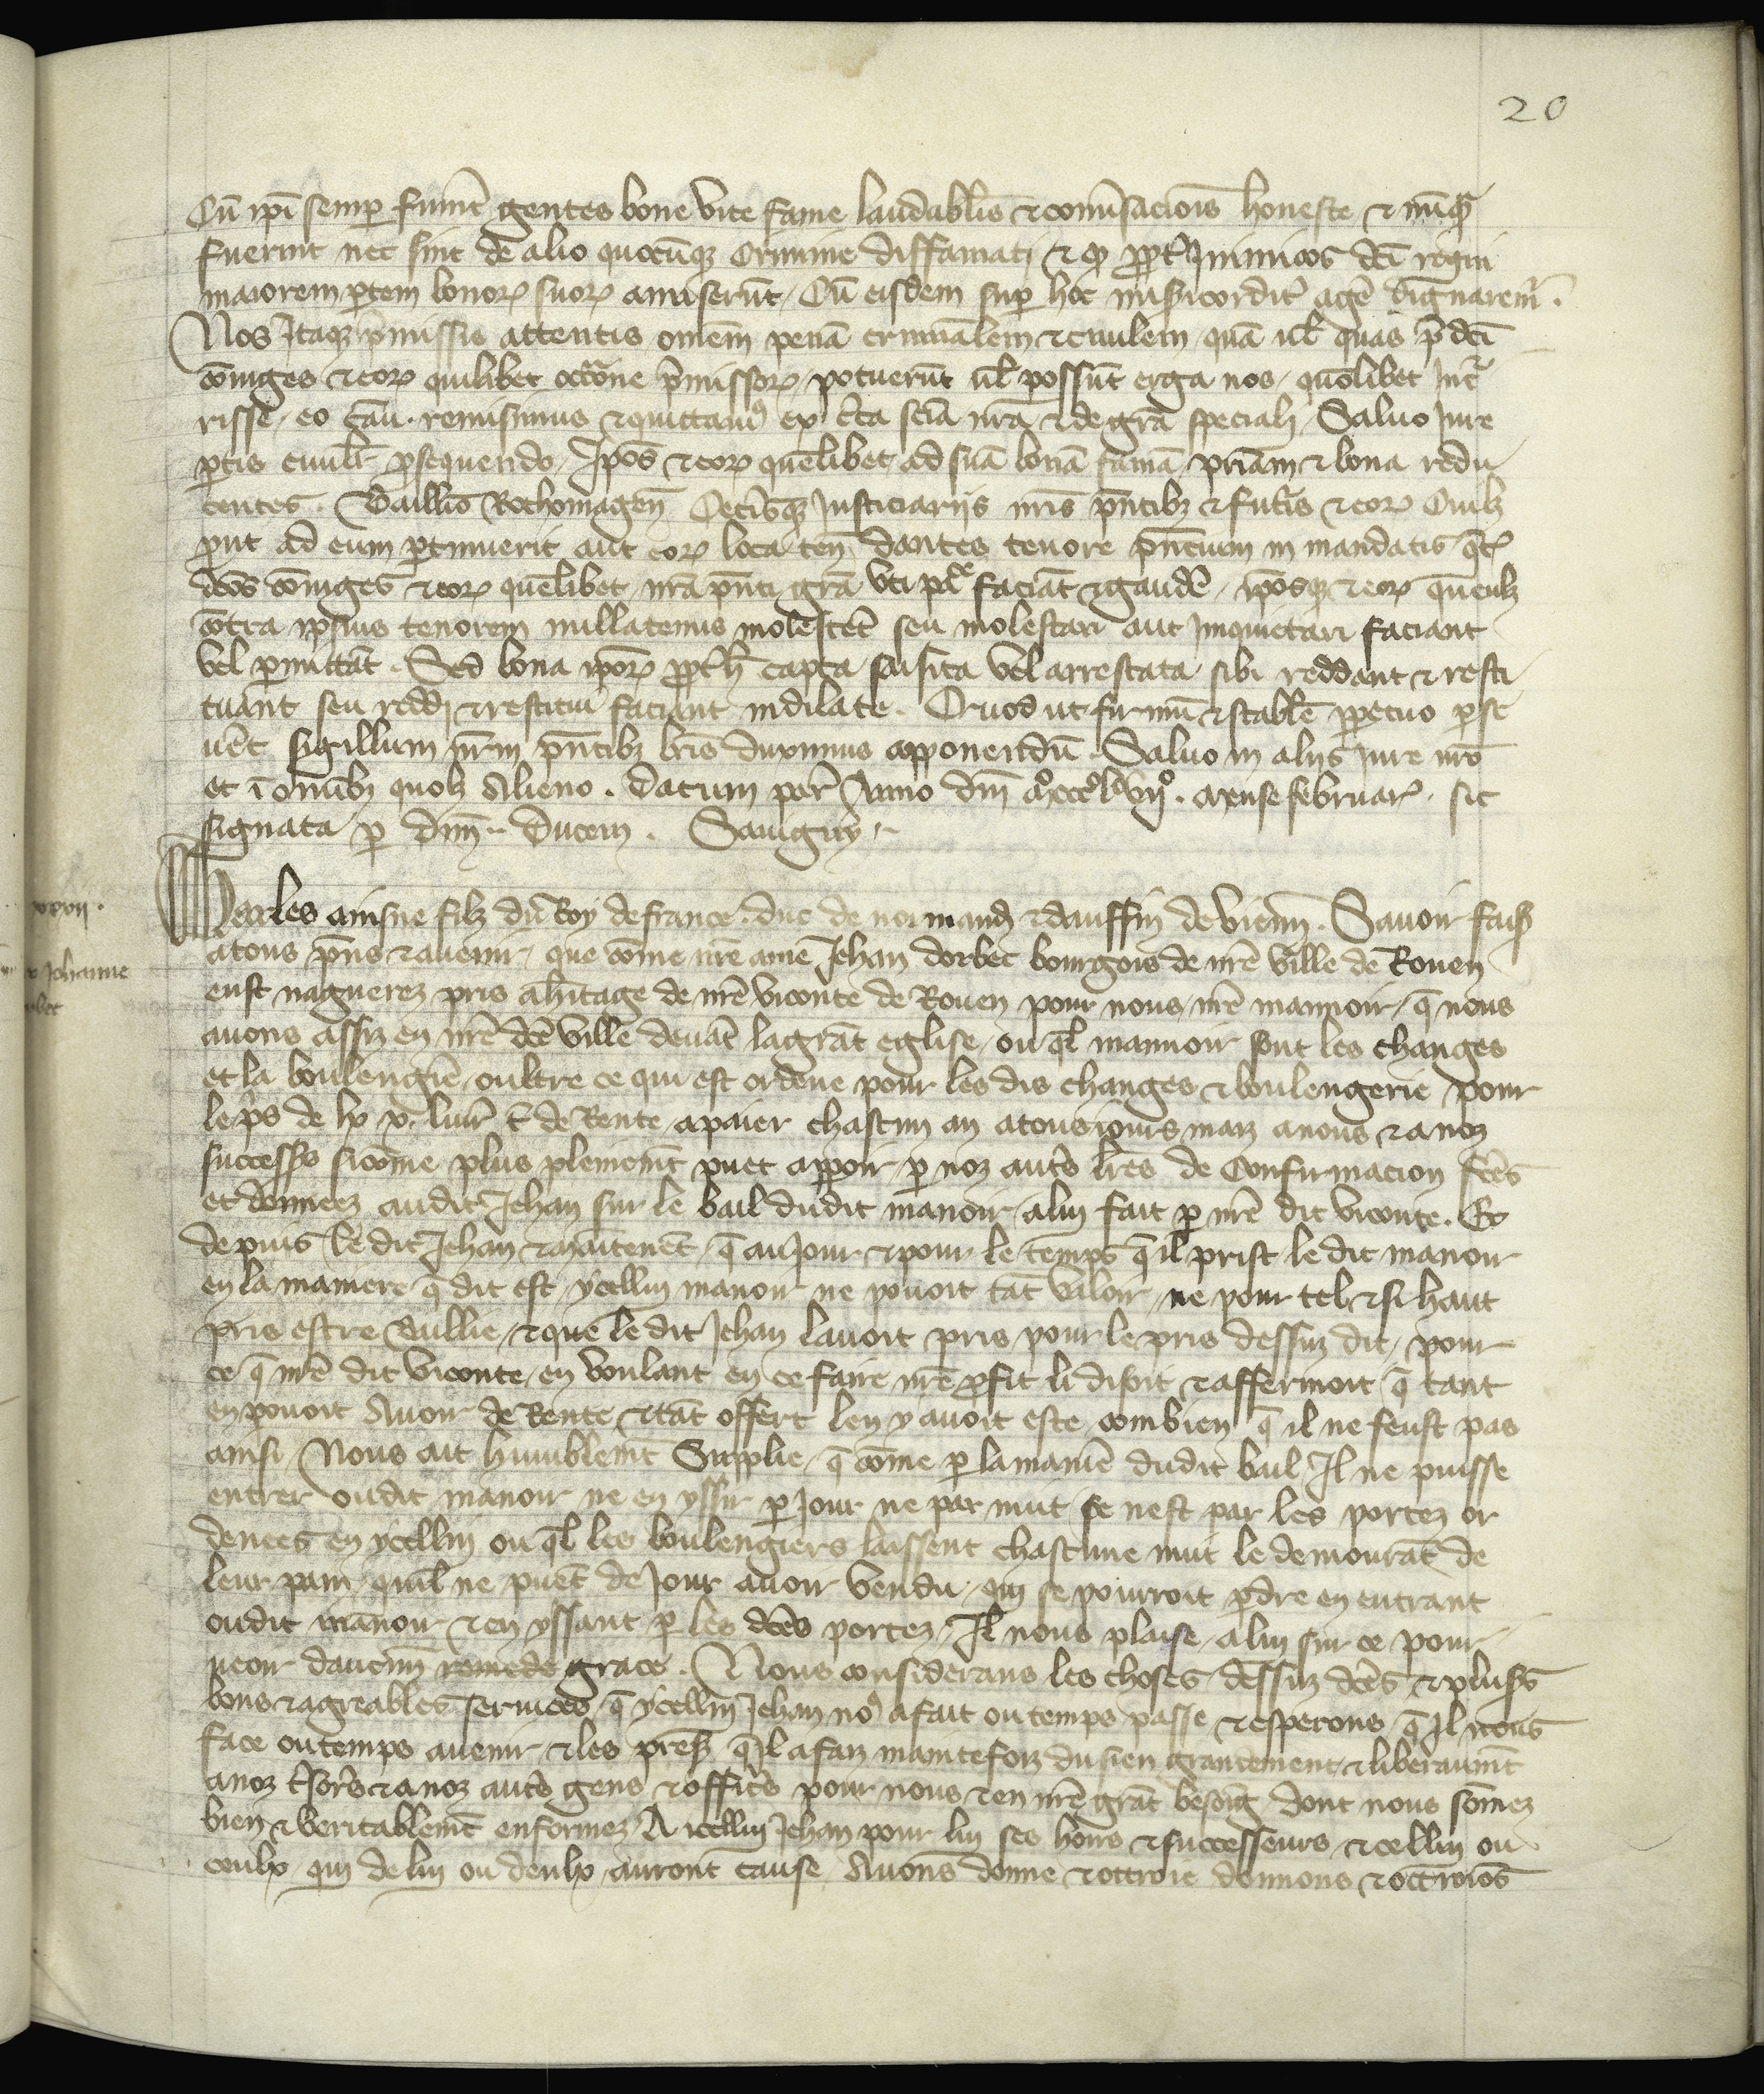 20
Cū ip̄i semp̱ fuerīt gentes bone vite fame laudabil̄is ⁊ conu̓sacion̄is honeste ⁊ nūq̄
fuerint nec sint de alio quocūq; crimine diffamati ⁊ qͥ ꝓpt̓ Inimicos dc̄i regni
maiorem ꝑtem bonoꝝ suoꝝ amiserūt, Cū eisdem suꝑ hoc misericordit̓ agē dignarem̓.
Nos Itaq; p̄missis attentis om̄em penā criminalem ⁊ ciuilem quā ul̄ quas p̄dc̄i
cōiuges ⁊ eoꝝ quilibet occōne p̄missoꝝ potuerūt ul̄ possūt erga nos quōlibet Inc̓
risse eo cāu. remisimus ⁊ quittauiꝰ ex c̓ta sciā nrā ⁊ de grā speciali Saluo iure
ꝑtis ciuilit̓ ꝓsequendo, Ip̄os ⁊ eoꝝ quēlibet ad suā bonā famā pr̄iam ⁊ bona redu
centes. Baillīo Rothomageñ Cet̓isq; Justiciarijs nr̄is p̄ntibꝫ ⁊ futis ⁊ eoꝝ cuilꝫ
put ad eum ꝑtinuerit aut eoꝝ loca teñ dantes tenore p̄ntium in mandatis q̄t
dc̄os cōiuges ⁊ eoꝝ quēlibet nrā p̄nti grā vti pac̄ faciāt ⁊ gaudē, ip̄osq; ⁊ eoꝝ quēlꝫ
cōtra ip̄sius tenorem nullatenus molestēt seu molestari aut Inquietari faciant
vel ꝑmittāt. Sed bona ip̄oꝝ ꝓpt̓ h̄ capta saisita vel arrestata sibi reddant ⁊ resti
tuant seu reddi ⁊ restitui faciant indilate. Quod ut firmū ⁊ stabile ꝑpetuo ꝑse
uēt sigillum nr̄m p̄ntibꝫ lr̄is duximus apponendū. Saluo in alijs iure nr̄o
et ī om̄ibꝫ quolꝫ Alieno. Datum par̄ Anno dm̄ Mͦ cccͦ lvijͦ. Mense februaꝝ. sic
signata ꝑ dn̄m Ducem. Sauigny
xxxvij.
Johanne
Charles ainsne filz du Roy de france. duc de normand̄ ⁊ dauffin de vienn̄. Sauoir fais̄
atous p̄ns ⁊ auenir, que cōme nr̄e ame Jehan dorbec bourgois de nr̄e ville de Rouen
eust nagueres pris ah̓itage de nr̄e viconte de Rouen pour nous nr̄e mannoir q̄ nous
auons assiz en nr̄e dc̄e ville deuāt lagrāt eglise ou q̄l mannoir sont les changes
et la boulengr̄ie oultre ce qui est ordene pour les dis changes ⁊ boulengerie pour
le p̓s de lx x. liur̄ t̄ de Rente apaier chascun an atousiours maiz anous ⁊ a noz
success̄s sicōme plus plenemēt puet apparoir ꝑ noz aut̓s lr̄es de Confirmacion fc̄es
et donnees audit Jehan sur le bail dudit manoir alui fait ꝑ nr̄e dit viconte. Et
depuis le dit Jehan ⁊ maītenēt q̄ au Jour ⁊ pour le temps q̄ il prist le dit manoir
en la maniere q̄ dit est ycellui manoir ne pouoit tāt valoir ne pour tel ⁊ si haut
pris estre Baillie, ⁊ que le dit Jehan lauoit pris pour le pris dessus dit, pour
ce q̄ nr̄e dit viconte en voulant en ce faire nr̄e ꝓfit li disoit ⁊ affermoit q̄ tant
en pouoit Auoir de Rente ⁊ tāt offert len y auoit este combien q̄ il ne feust pas
ainsi, Nous ait humblemēt Supplie q̄ cōme ꝑ la manīe dudit bail Il ne puisse
entrer oudit manoir ne en yssir ꝑ Jour ne par nuit se nest par les portez or
denees en ycellui ou q̄l les boulengiers laissent chascune nuit le demourāt de
leur pain quil ne puēt de Jour auoir vendu qui se pourroit ꝑdre en entrant
oudit manoir ⁊ en yssant ꝑ les dc̄es portez, Il nous plaise alui sur ce pour
ueoir daucun remede grace. Nous considerans les choses dessus dc̄es ⁊ plus̄s
bons ⁊ agreables seruices q̄ ycellui Jehan noꝰ afait ou temps passe ⁊ esperons q̄ Il nous
face ou temps auenir ⁊ les prests q̄ il afaiz maintefoiz du sien grandement ⁊ liberaumt̄
anoz t̓sor̄s ⁊ a noz aut̓s gens ⁊ offic̓s pour nous ⁊ en nr̄e grāt besoīg dont nous sōmez
bien ⁊ veritablemt̄ enformez A icellui Jehan pour lui ses hoirs ⁊ successeurs ⁊ cellui ou
ceulx qui de lui ou deulx auront cause Auons donne ⁊ ottroie donnons ⁊ ottroiōs